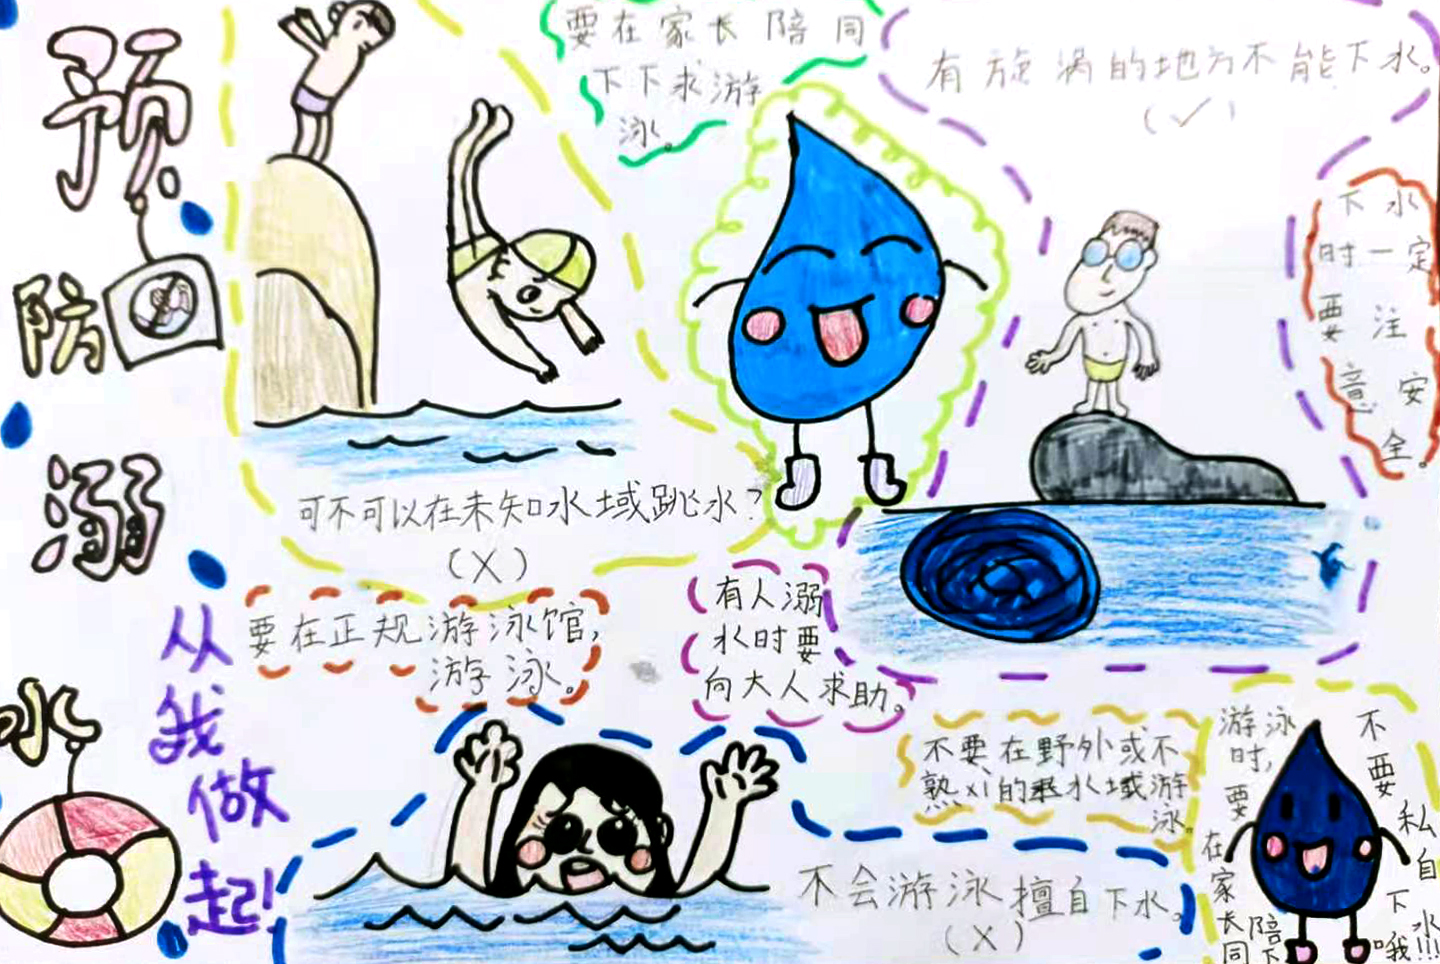 预
防
溺
水
从
我
做
起!
要在家长陪同
下下求游
泳。
有旋涡的地方不能下水。
(✓)
下水
时一定
要注
意安
全。
可不可以在未知水域跳水?
(X)
要在正规游泳馆,
游泳。
有人溺
水时要
向大人求助。
不要在野外或不
熟xi的水域游
泳。
不会游泳擅自下水。
(X)
游泳
时,
要
在
家
长陪
同下
不
要
私
自
下
水
哦!!!